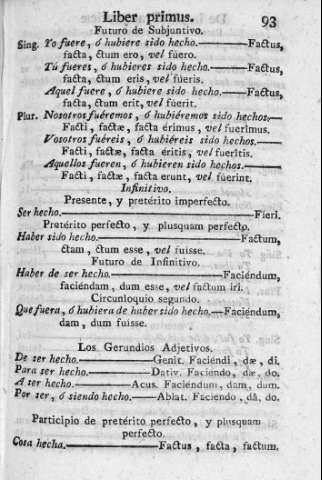 Liber primus. 93
Futuro de Subjuntivo.
Sing. Yo fuere, ó hubiere sido hecho.—Factus,
facta, ctum ero, vel fúero.
Tú fueres, ó hubieres sido hecho.—Factus,
facta, ctum eris, vel fúeris.
Aquel fuere, ó hubiere sido hecho.—Factus,
facta, ctum erit, vel fúerit.
Plur. Nosotros fuéremos, ó hubiéremos sido hechos.—
Facti, factæ, facta érimus, vel fuerîmus.
Vosotros fuéreis, ó hubiéreis sido hechos.—
Facti, factæ, facta éritis, vel fuerîtis.
Aquellos fueren, ó hubieren sido hechos.—
Facti, factæ, facta erunt, vel fúerint.
Infinitivo.
Presente, y pretérito imperfecto.
Ser hecho.—Fieri.
Pretérito perfecto, y plusquam perfecto.
Haber sido hecho.—Factum,
ctam, ctum esse, vel fuisse.
Futuro de Infinitivo.
Haber de ser hecho.—Faciéndum,
faciéndam, dum esse, vel factum iri.
Circunloquio segundo.
Que fuera, ó hubiera de haber sido hecho.—Faciéndum,
dam, dum fuisse.
Los Gerundios Adjetivos.
De ser hecho.—Genit. Faciéndi, dæ, di.
Para ser hecho.—Dativ. Faciéndo, dæ, do.
A ser hecho.—Acus. Faciéndum, dam, dum.
Por ser, ó siendo hecho.—Ablat. Faciendo, dâ, do.
Participio de pretérito perfecto, y plusquam
perfecto.
Cosa hecha.—Factus, facta, factum.